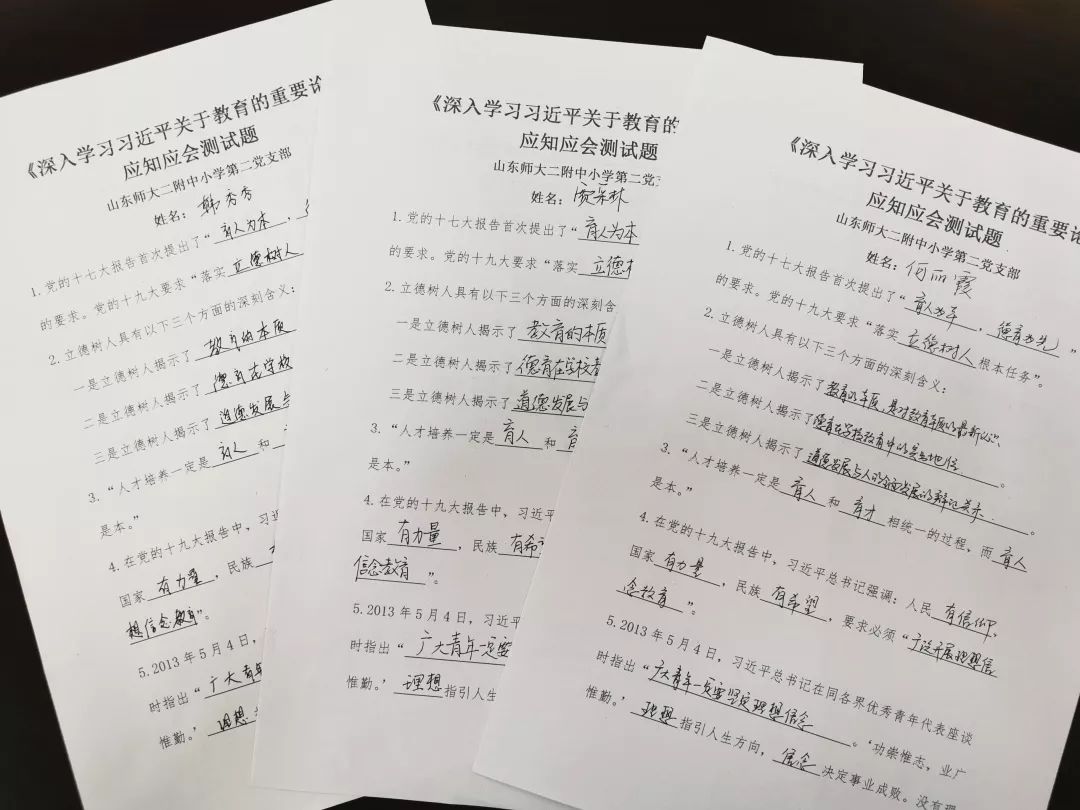 《深入学习习近平关于教育的重要论
应知应会测试题
山东师大二附中小学第二党支部
姓名：韩秀秀
1. 党的十七大报告首次提出了“育人为本，
的要求。党的十九大要求“落实 立德树人
2. 立德树人具有以下三个方面的深刻含义：
一是立德树人揭示了 教育的本质
二是立德树人揭示了 德育在学校
三是立德树人揭示了 道德发展与
3. “人才培养一定是 育人 和
是本。”
4. 在党的十九大报告中，习近
国家 有力量，民族
想信念教育”。
5. 2013 年 5 月 4 日，
时指出“广大青年
惟勤。’ 理想
《深入学习习近平关于教育的
应知应会测试题
山东师大二附中小学第二党支
姓名：
1. 党的十七大报告首次提出了“育人为本
的要求。党的十九大要求“落实 立德
2. 立德树人具有以下三个方面的深刻含
一是立德树人揭示了 教育的本质
二是立德树人揭示了 德育在学校
三是立德树人揭示了 道德发展与
3. “人才培养一定是 育人 和 育
是本。”
4. 在党的十九大报告中，习近平
国家 有力量，民族 有希
信念教育”。
5. 2013 年 5 月 4 日，习近平
时指出“广大青年一定要
惟勤。’ 理想指引人生
《深入学习习近平关于教育的重要论
应知应会测试题
山东师大二附中小学第二党支部
姓名：何丽霞
1. 党的十七大报告首次提出了“育人为本，德育为先”
的要求。党的十九大要求“落实 立德树人 根本任务”。
2. 立德树人具有以下三个方面的深刻含义：
一是立德树人揭示了教育的本质，是对教育本质的最新认识。
二是立德树人揭示了德育在学校教育中的地位
三是立德树人揭示了道德发展与人的全面发展的辩证关系。
3. “人才培养一定是 育人 和 育才 相统一的过程，而 育人
是本。”
4. 在党的十九大报告中，习近平总书记强调：人民 有信仰，
国家 有力量，民族 有希望，要求必须“广泛开展理想信
念教育”。
5. 2013 年 5 月 4 日，习近平总书记在同各界优秀青年代表座谈
时指出“广大青年一定要坚定理想信念。‘功崇惟志，业广
惟勤。’ 理想 指引人生方向，信念 决定事业成败。没有理